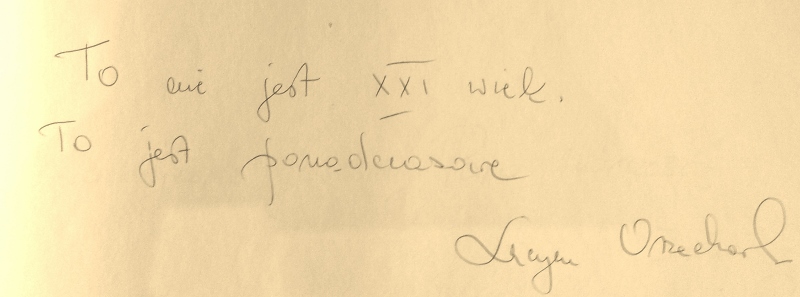 To nie jest XXI wiek.
To jest ponadczasowe
Orzechowski